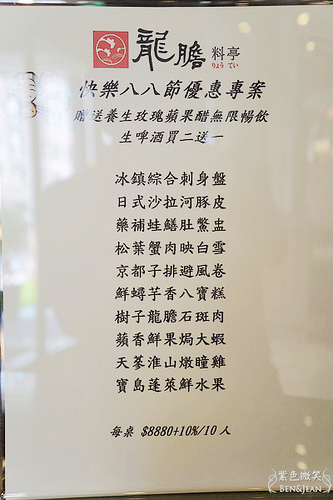 龍膽 料亭
りょう てい
快樂八八節優惠專案
贈送養生玫瑰蘋果醋無限暢飲
生啤酒買二送一
冰鎮綜合刺身盤
日式沙拉河豚皮
藥補蛙鱔肚鱉盅
松葉蟹肉映白雪
京都子排避風卷
鮮蟳芋香八寶糕
樹子龍膽石斑肉
蘋香鮮果焗大蝦
天蔘淮山燉瞳雞
寶島蓬萊鮮水果
每桌 $8880+10%/10人
紫色微笑
BEN&JEAN